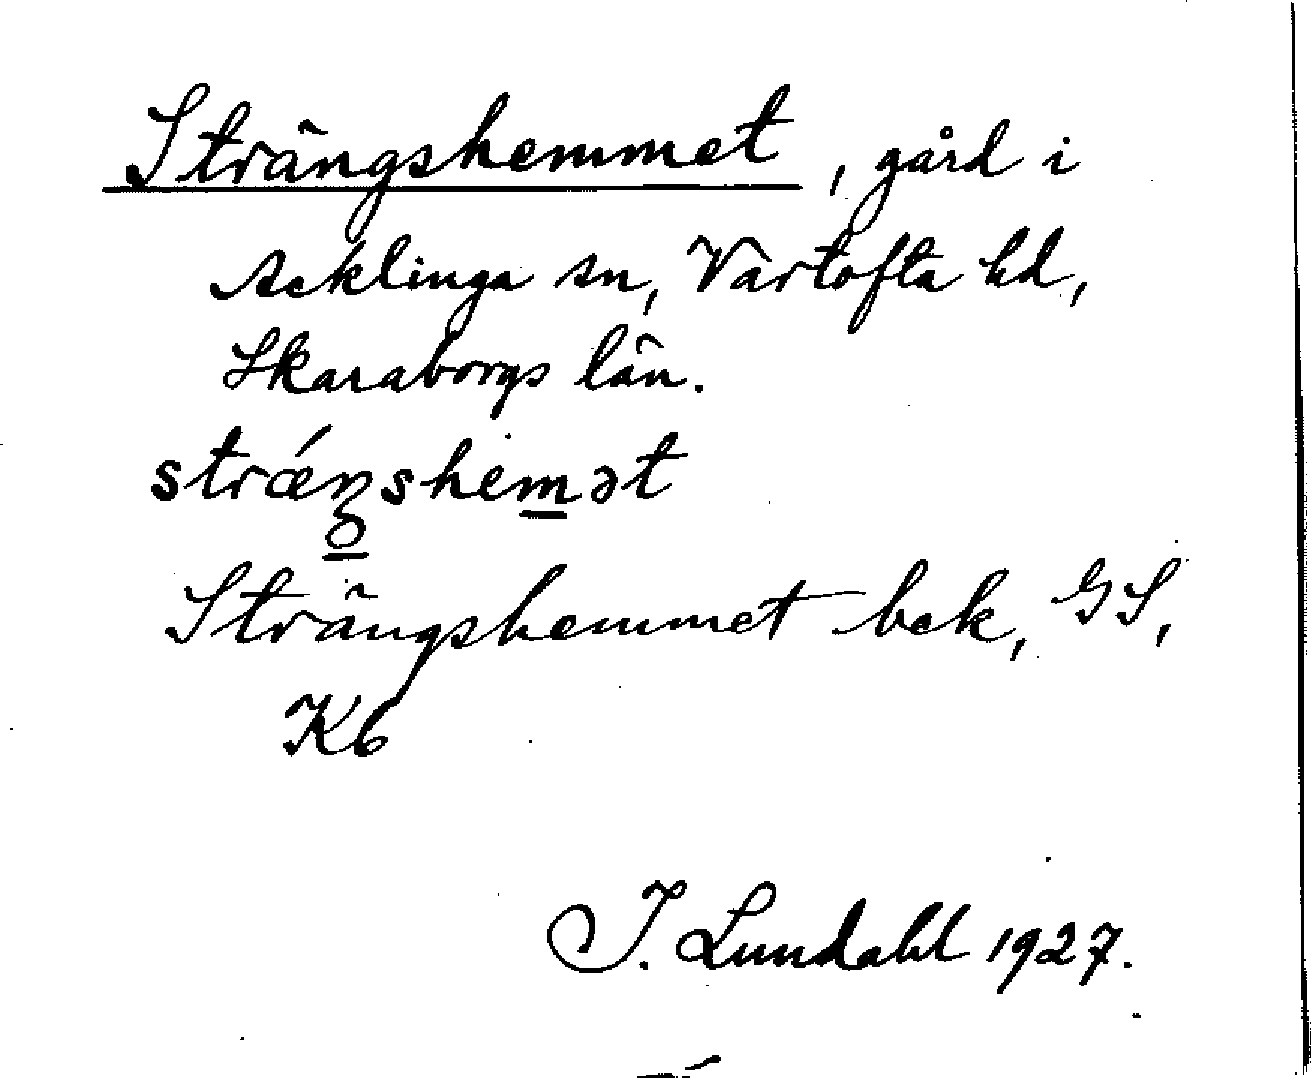 Strängshemmet, gård i
Acklinga sn, Vartofta hd,
Skaraborgs län.
strǽŋshem̲ət
Strängshemmet bek, GS,
Kb
I. Lundahl 1927.